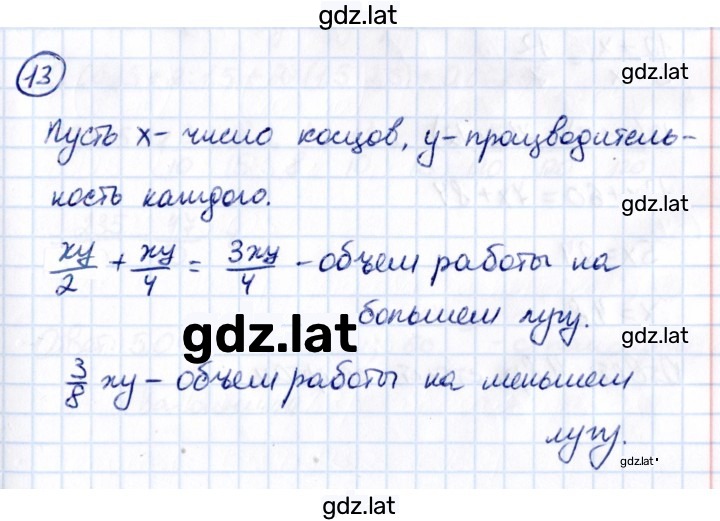 gdz.lat
13
gdz.lat
Пусть x - число косцов, y - производитель-
ность каждого.
gdz.lat
xy/2 + xy/4 = 3xy/4 - объем работы на
большем лугу.
gdz.lat
gdz.lat
3/8 xy - объем работы на меньшем
лугу.
gdz.lat
gdz.lat